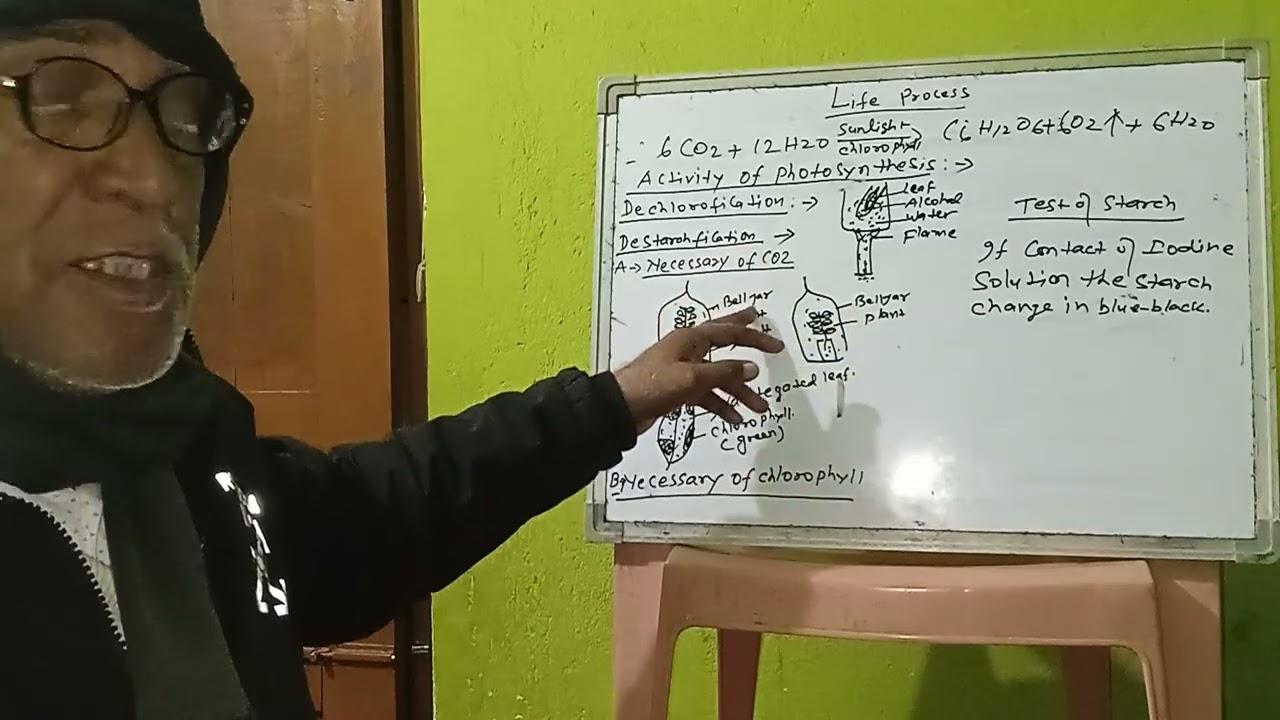 Life Process
6CO2 + 12H2O sunlight chlorophyll C6H12O6+6O2↑+ 6H2O
Activity of photosynthesis:→
Dechlorofication:→
leaf
Alcohol
water
Flame
Destarchfication →
A→ Necessary of CO2
Belljar
Belljar
plant
leaf.
chlorophyll.
(green)
B→ Necessary of chlorophyll
Test of Starch
If Contact of Iodine
Solution the starch
change in blue-black.